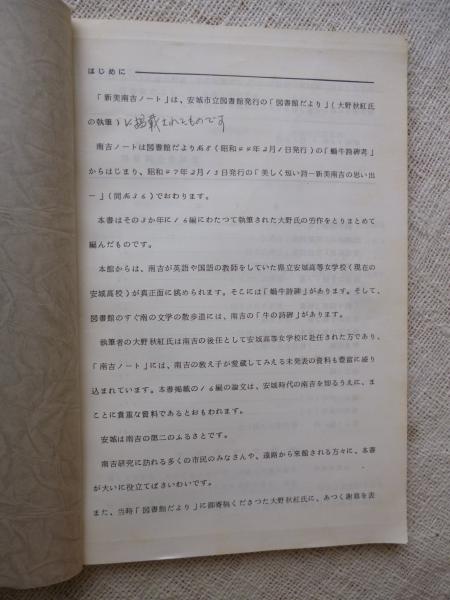 はじめに
「新美南吉ノート」は、安城市立図書館発行の「図書館だより」(大野秋紅氏
の執筆)に掲載されたものです
南吉ノートは図書館だより№8(昭和44年2月1日発行)の「蝸牛詩碑考」
からはじまり、昭和47年2月15日発行の「美しく短い詩―新美南吉の思い出
―」(同№36)でおわります。
本書はその3か年に16編にわたつて執筆された大野氏の労作をとりまとめて
編んだものです。
本館からは、南吉が英語や国語の教師をしていた県立安城高等女学校(現在の
安城高校)が真正面に眺められます。そこには「蝸牛詩碑」があります。そして、
図書館のすぐ南の文学の散歩道には、南吉の「牛の詩碑」があります。
執筆者の大野秋紅氏は南吉の後任として安城高等女学校に赴任された方であり、
「南吉ノート」には、南吉の教え子が愛蔵してみえる未発表の資料も豊富に盛り
込まれています。本書掲載の16編の論文は、安城時代の南吉を知るうえに、ま
ことに貴重な資料であるとおもわれます。
安城は南吉の第二のふるさとです。
南吉研究に訪れる多くの市民のみなさんや、遠路から来館される方々に、本書
が大いに役立てばさいわいです。
また、当時「図書館だより」に御寄稿くださつた大野秋紅氏に、あつく謝意を表